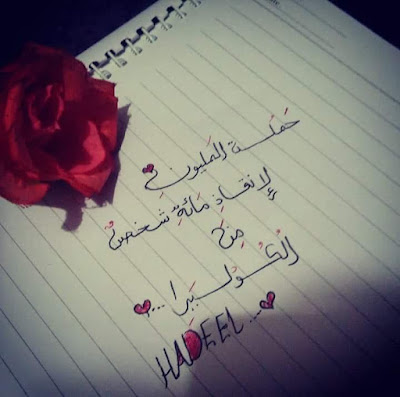 حملة المليون
لإنقاذ مائة شخص
من
الكوليرا...
HADEEL...